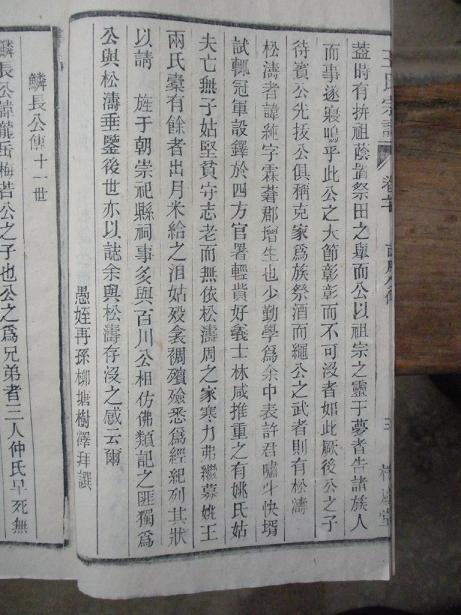 王氏宗譜
蓋時有拚祖蔭鬻祭田之舉而公以祖宗之靈于夢者告諸族人
而事遂寢嗚乎此公之大節彰彰而不可沒者如此厥後公之子
待賓公先拔公俱稱克家為族祭酒而繩公之武者則有松濤
松濤者諱純字霖蒼郡增生也少勤學為余中表許君嘯斗快壻
試輒冠軍設鐸於四方官署輕貲好義士林咸推重之有姚氏姑
夫亡無子姑堅貞守志老而無依松濤周之家寒力弗繼募姚王
兩氏稾有餘者出月米給之洎姑歿衾襉殯殮悉為經紀列其狀
以請 旌于朝崇祀縣祠事多與百川公相仿佛類記之匪獨為
公與松濤垂鑒後世亦以誌余與松濤存沒之感云爾
愚姪再孫柳塘樹澤拜譔
鱗長公傳十一世
鱗長公諱龍岳梅若公之子也公之為兄弟者三人仲氏早死無